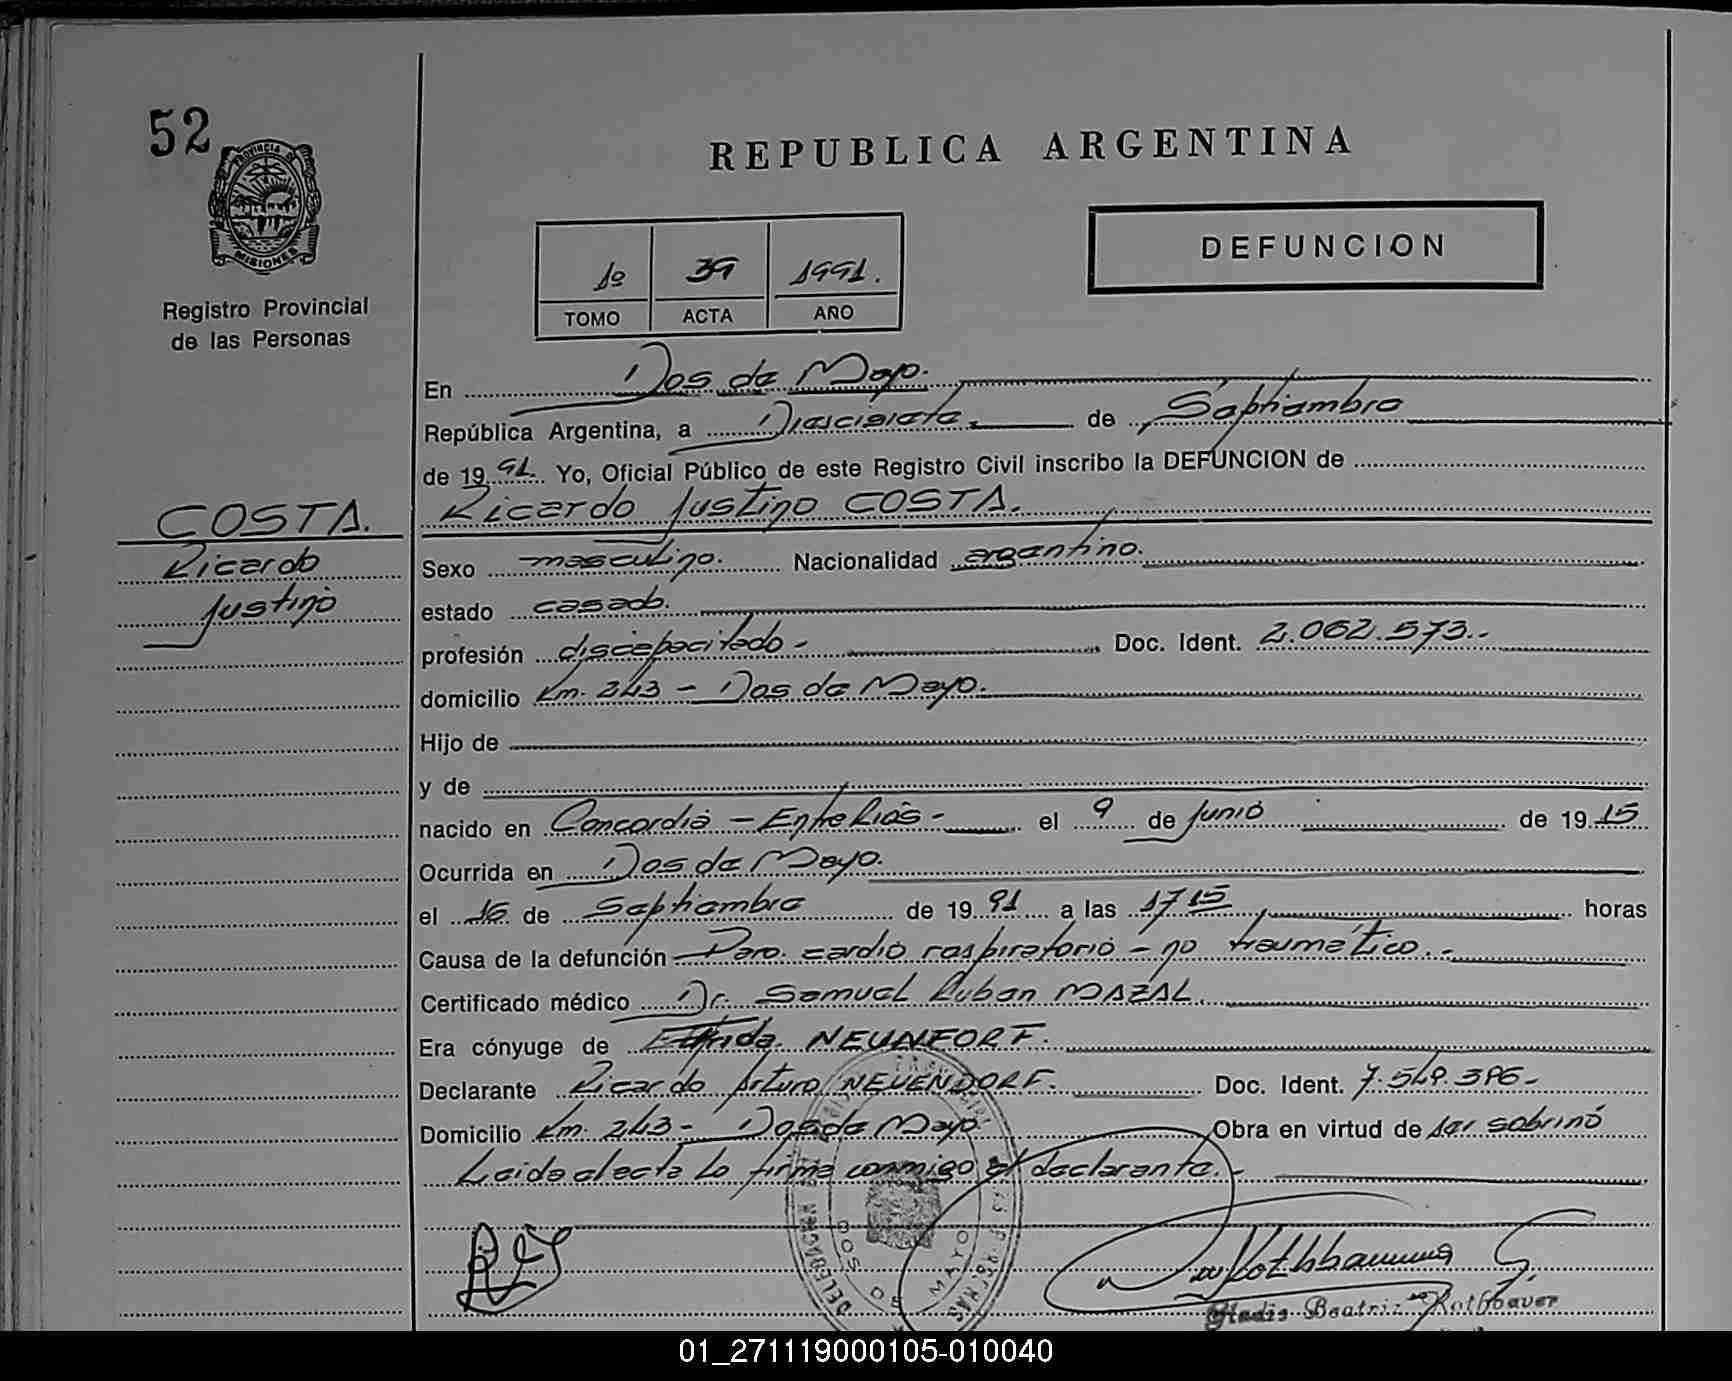 52
PROVINCIA DE
MISIONES
Registro Provincial
de las Personas
REPUBLICA ARGENTINA
1º 39 1991.
TOMO ACTA AÑO
DEFUNCION
En Dos de Mayo.
República Argentina, a Diecisiete. de Septiembre
de 19 91. Yo, Oficial Público de este Registro Civil inscribo la DEFUNCION de
Ricardo Justino COSTA.
COSTA.
Ricardo
Justino
Sexo masculino. Nacionalidad argentino.
estado casado.
profesión discapacitado - Doc. Ident. 2.062.573.-
domicilio Km. 243 - Dos de Mayo.
Hijo de
y de
nacido en Concordia - Entre Rios - el 9 de Junio de 19 15
Ocurrida en Dos de Mayo.
el 16 de Septiembre de 19 91 a las 17 15 horas
Causa de la defunción Paro cardio respiratorio - no traumático.-
Certificado médico Dr. Samuel Ruben MAZAL.
Era cónyuge de NEUNFORF.
Declarante Ricardo Arturo NEUENDORF. Doc. Ident. 7.549.396-
Domicilio Km. 243 - Dos de Mayo Obra en virtud de ser sobrino
Leida el acta lo firma conmigo el declarante.-
DOS DE MAYO
Gladis Beatriz Rothbauer
01_271119000105-010040